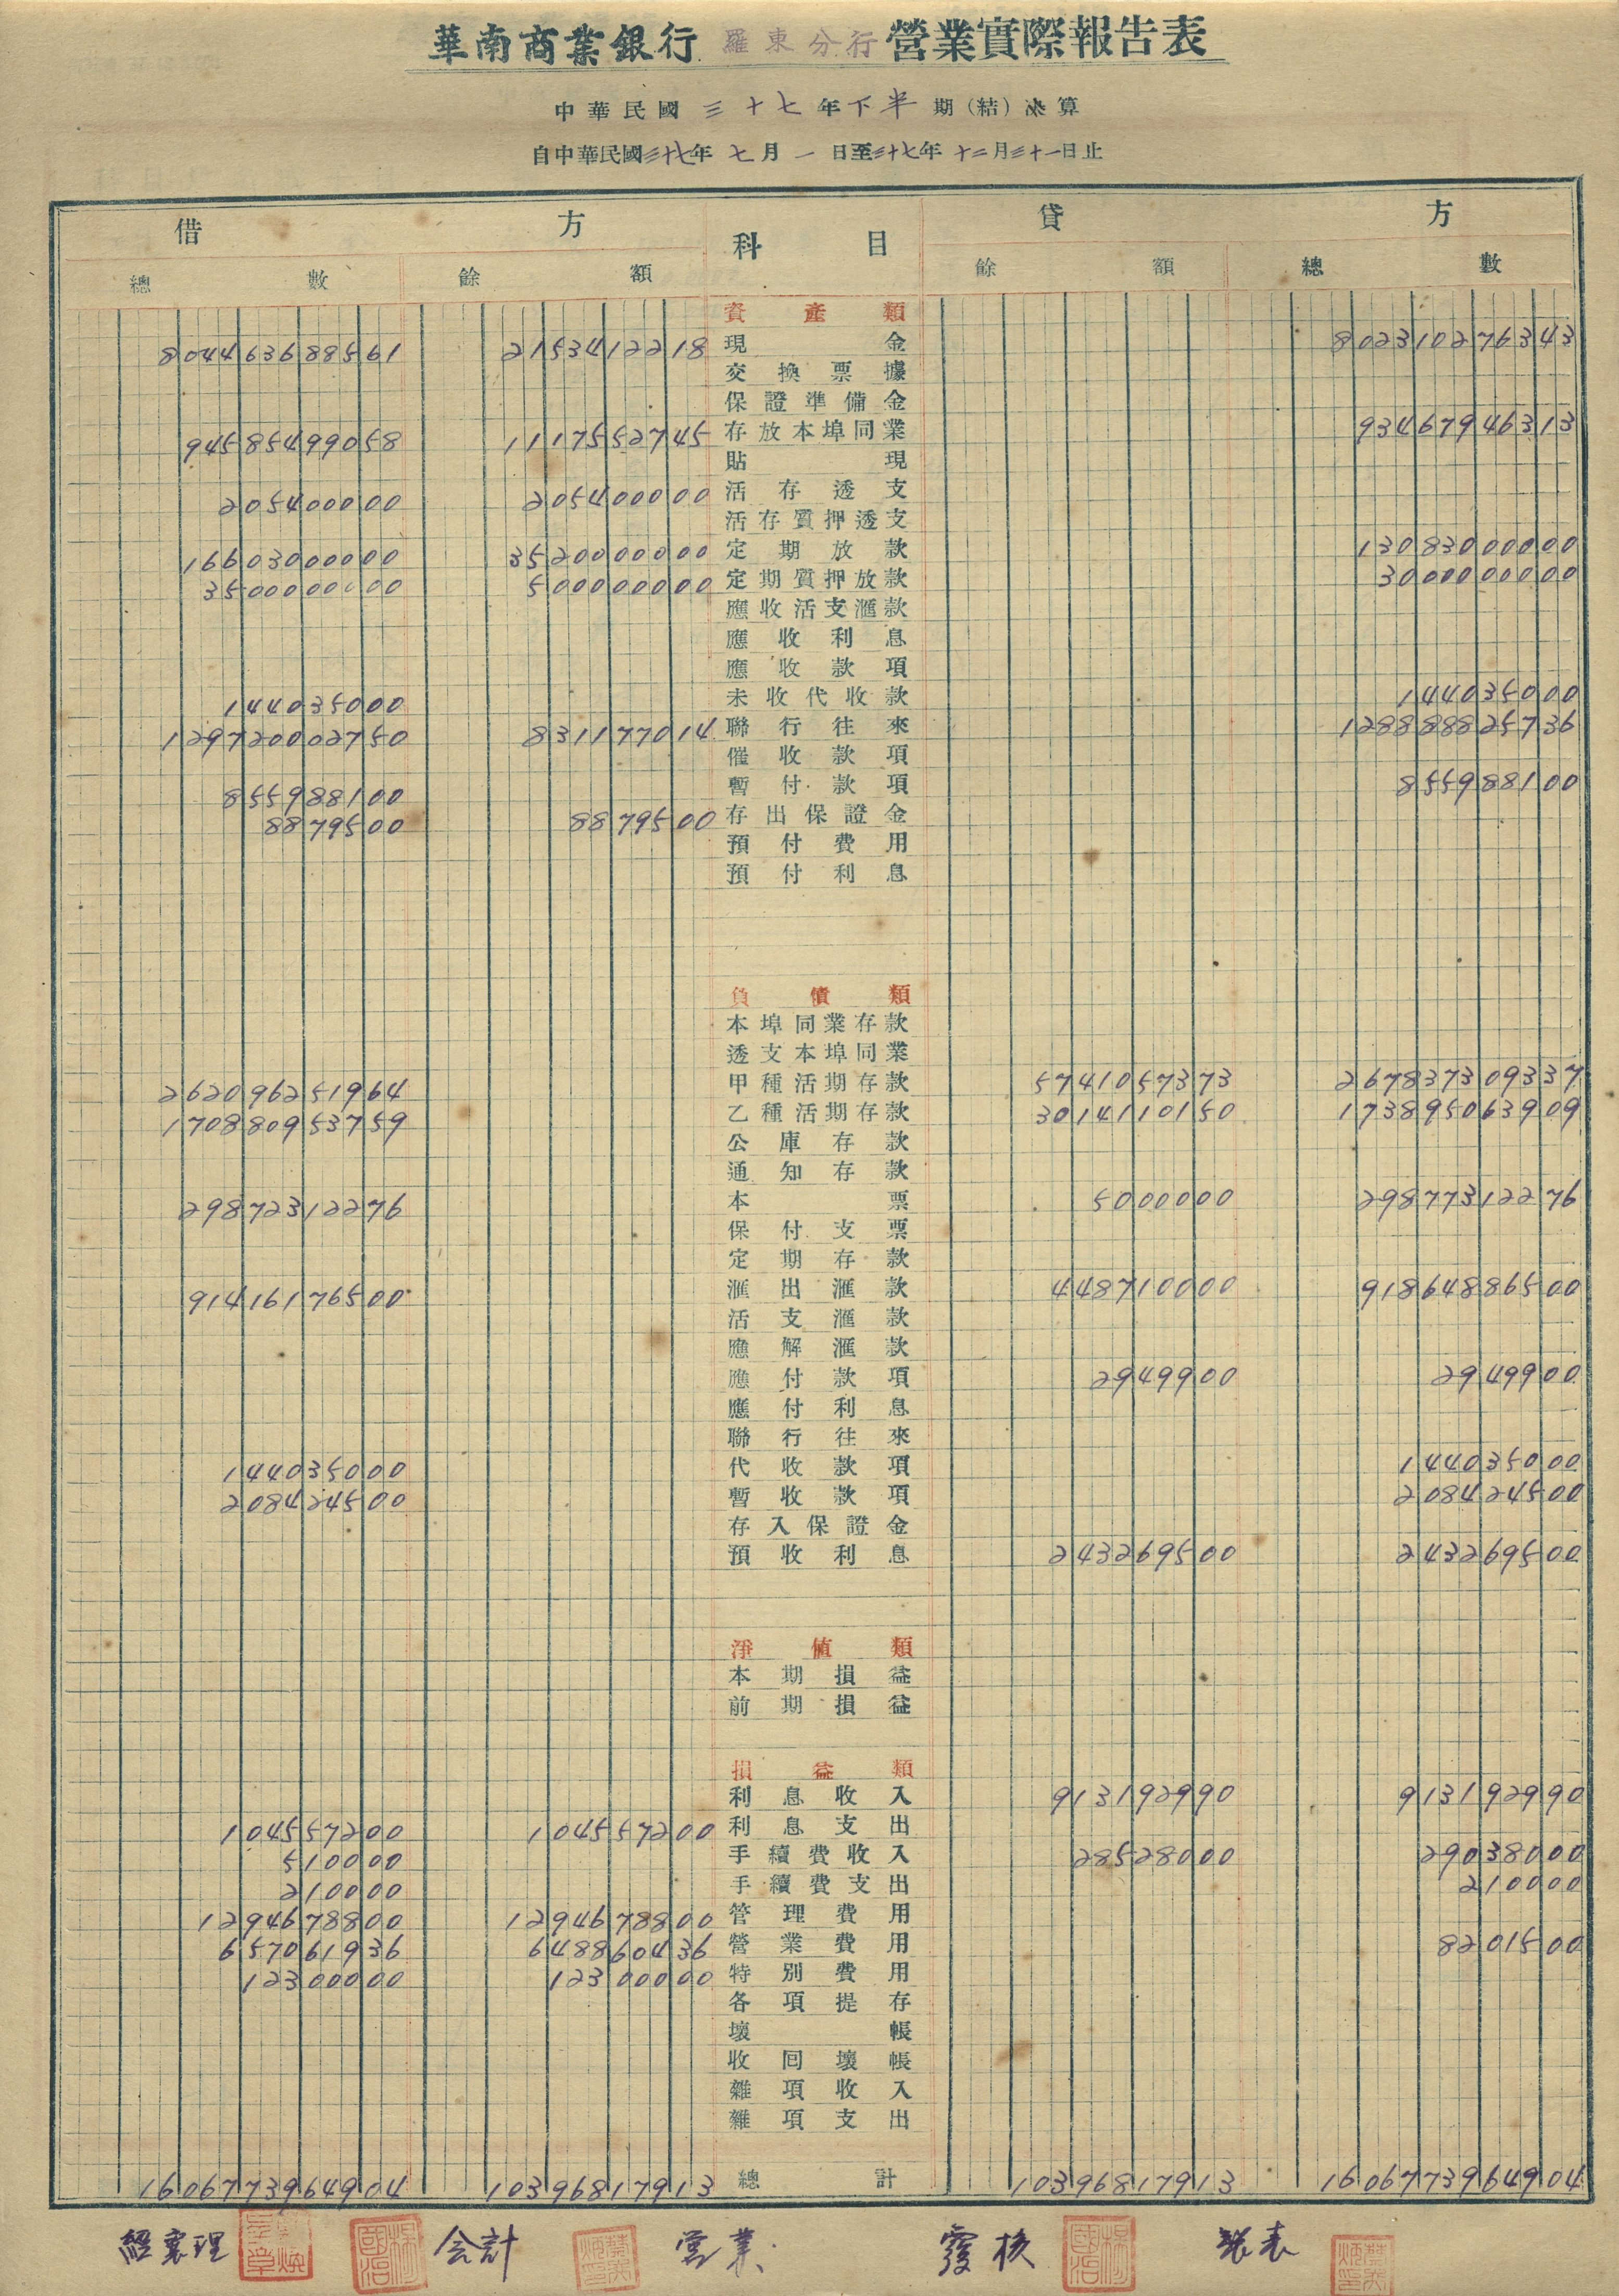 華南商業銀行 羅東分行 營業實際報告表
中華民國三十七年下半期(結)決算
自中華民國三十七年七月一日至三十七年十二月三十一日止
借方 科目 貸方
總數 餘額 餘額 總數
資產類
804463688561 2153412218 現金 802310276343
交換票據
保證準備金
94585499058 1117552745 存放本埠同業 93467946313
貼現
205400000 205400000 活存透支
活存質押透支
16603000000 3520000000 定期放款 13083000000
3500000000 500000000 定期質押放款 3000000000
應收活支滙款
應收利息
應收款項
144035000 未收代收款 144035000
129720002750 831177014 聯行往來 128888825736
催收款項
855988100 暫付款項 855988100
8879500 8879500 存出保證金
預付費用
預付利息
負債類
本埠同業存款
透支本埠同業
262096251964 甲種活期存款 5741057373 267837309337
170880953759 乙種活期存款 3014110150 173895063909
公庫存款
通知存款
29872312276 本票 5000000 29877312276
保付支票
定期存款
91416176500 滙出滙款 448710000 91864886500
活支滙款
應解滙款
應付款項 2949900 2949900
應付利息
聯行往來
144035000 代收款項 144035000
208424500 暫收款項 208424500
存入保證金
預收利息 243269500 243269500
淨值類
本期損益
前期損益
損益類
利息收入 913192990 913192990
104557200 104557200 利息支出
510000 手續費收入 28528000 29038000
210000 手續費支出 210000
1294678800 1294678800 管理費用
657061936 648860436 營業費用 8201500
12300000 12300000 特別費用
各項提存
壞帳
收回壞帳
雜項收入
雜項支出
1606773964904 10396817913 總計 10396817913 1606773964904
經襄理 会計 営業 覆核 製表